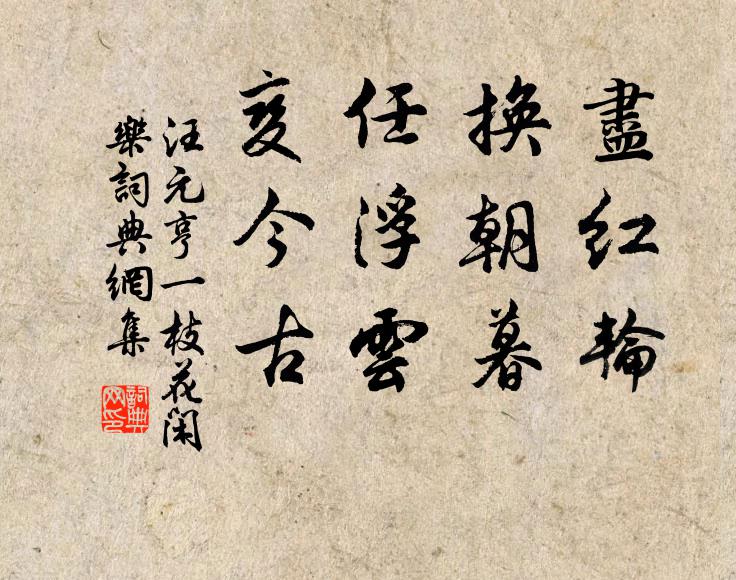 盡紅輪
換朝暮
任浮雲
変今古
汪元亨一枝花閑
樂詞典網集
詞典网印